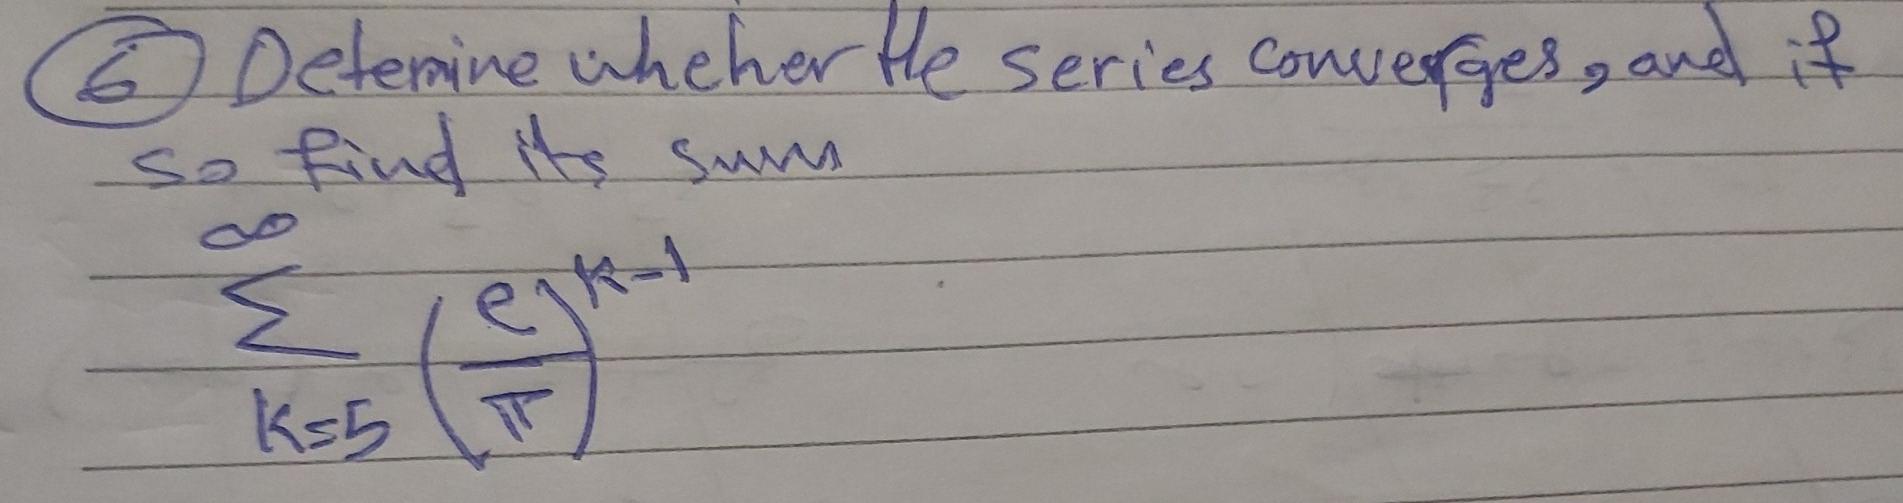 6 Detemine wheher the series converges, and if
so find its sum
∞
Σ (e/π)^k-1
k=5